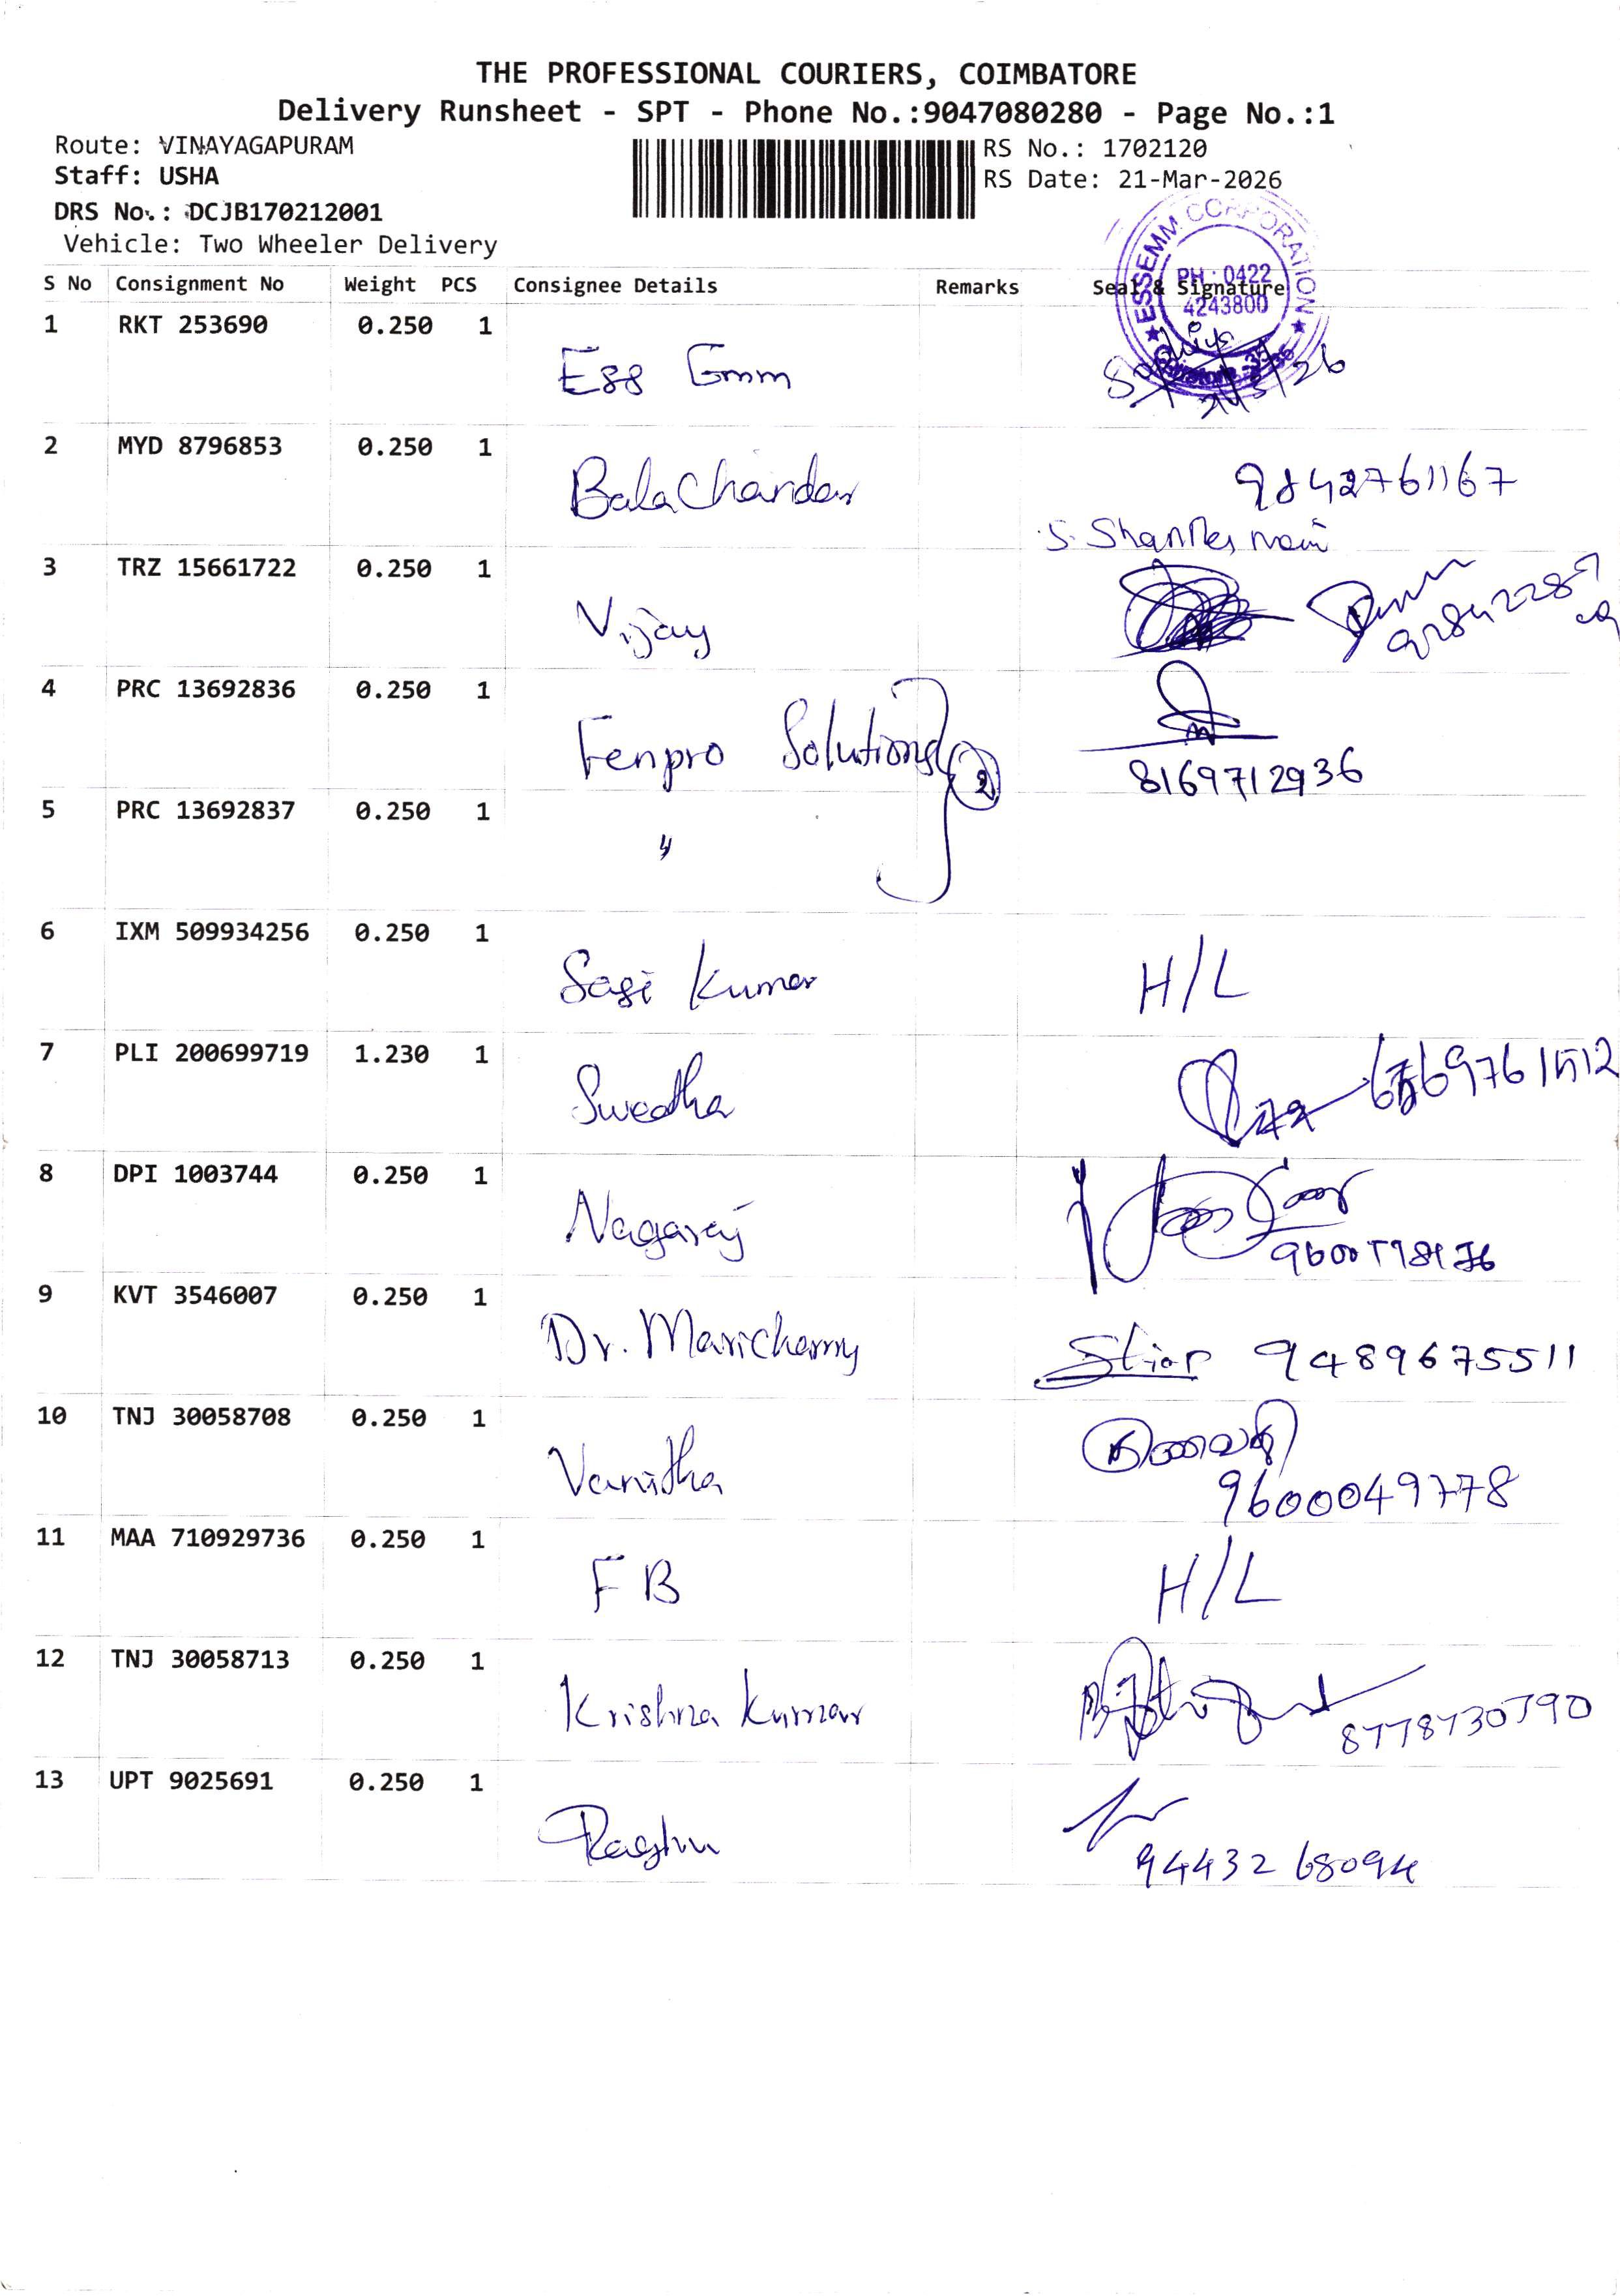 THE PROFESSIONAL COURIERS, COIMBATORE
Delivery Runsheet - SPT - Phone No.:9047080280 - Page No.:1
Route: VINAYAGAPURAM
Staff: USHA
DRS No.: DCJB170212001
Vehicle: Two Wheeler Delivery
RS No.: 1702120
RS Date: 21-Mar-2026
ESSEMM CORPORATION
PH : 0422
4243800
S No Consignment No Weight PCS Consignee Details Remarks Seal & Signature
1 RKT 253690 0.250 1 Ess Emm
2 MYD 8796853 0.250 1 BalaChandar 9842761167
3 TRZ 15661722 0.250 1 Vijay
4 PRC 13692836 0.250 1 Fenpro Solutions 2 8169712936
5 PRC 13692837 0.250 1 "
6 IXM 509934256 0.250 1 Sasi Kumar H/L
7 PLI 200699719 1.230 1 Swedha
8 DPI 1003744 0.250 1 Nagaraj
9 KVT 3546007 0.250 1 Dr. Marichamy 9489675511
10 TNJ 30058708 0.250 1 Vanitha 9600049778
11 MAA 710929736 0.250 1 FB H/L
12 TNJ 30058713 0.250 1 Krishna Kumar
13 UPT 9025691 0.250 1 Raghu 94432 68094